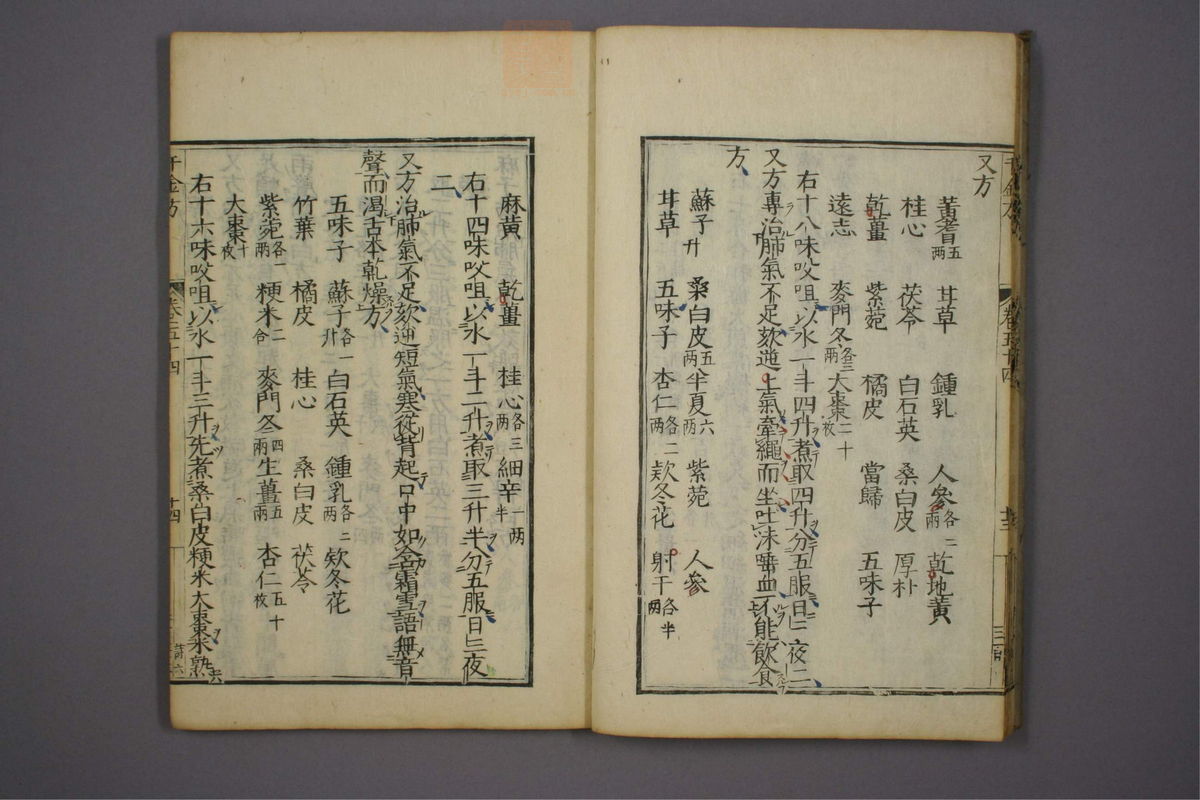 又方
黃耆五兩 甘草 鍾乳 人參各二兩 乾地黃
桂心 茯苓 白石英 桑白皮 厚朴
乾薑 紫菀 橘皮 當歸 五味子
遠志 麥門冬各三兩 大棗二十枚
右十八味㕮咀以水一斗四升煮取四升分五服日三夜二
又方專治肺氣不足欬逆上氣牽繩而坐吐沫唾血不能飲食
方
蘇子一升 桑白皮五兩 半夏六兩 紫菀 人參
甘草 五味子 杏仁各二兩 款冬花 射干各半兩
麻黃 乾薑 桂心各三兩 細辛一兩半
右十四味㕮咀以水一斗二升煮取三升半分五服日三夜
二
又方治肺氣不足欬逆短氣寒從背起口中如含霜雪語無音
聲而渴舌本乾燥方
五味子 蘇子各一升 白石英 鍾乳各二兩 款冬花
竹葉 橘皮 桂心 桑白皮 茯苓
紫菀各一兩 粳米二合 麥門冬四兩 生薑五兩 杏仁五十枚
大棗十枚
右十六味㕮咀以水一斗三升先煮桑白皮粳米大棗米熟
千金方 卷五十四 十四